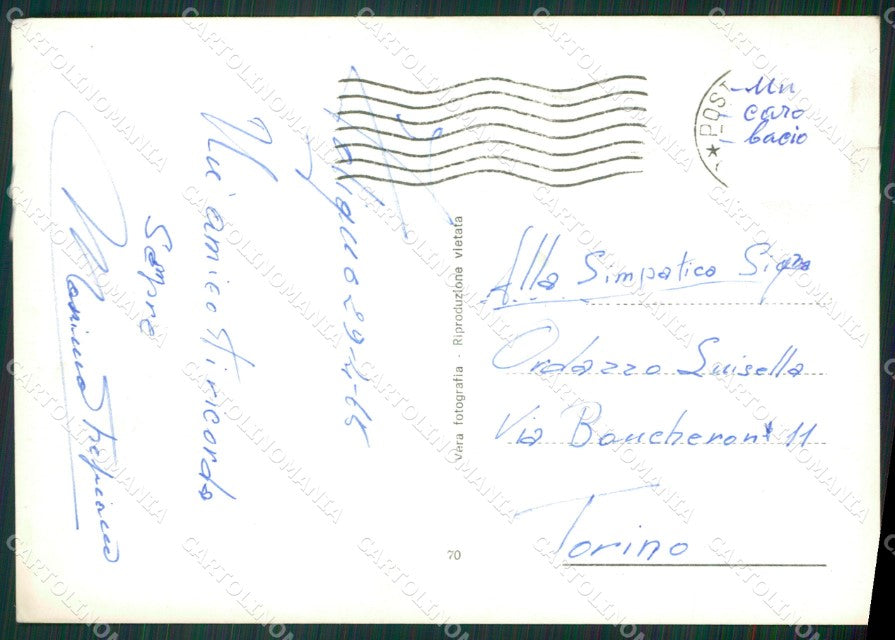 Un
caro
bacio
POST
29-4-65
Un'amico ti ricorda
Sempre
Massimo
Vera fotografia - Riproduzione vietata
70
Alla Simpatica Sig.ra
Ordazzo Luisella
Via Boucheron 11
Torino
CARTOLINOMANIA